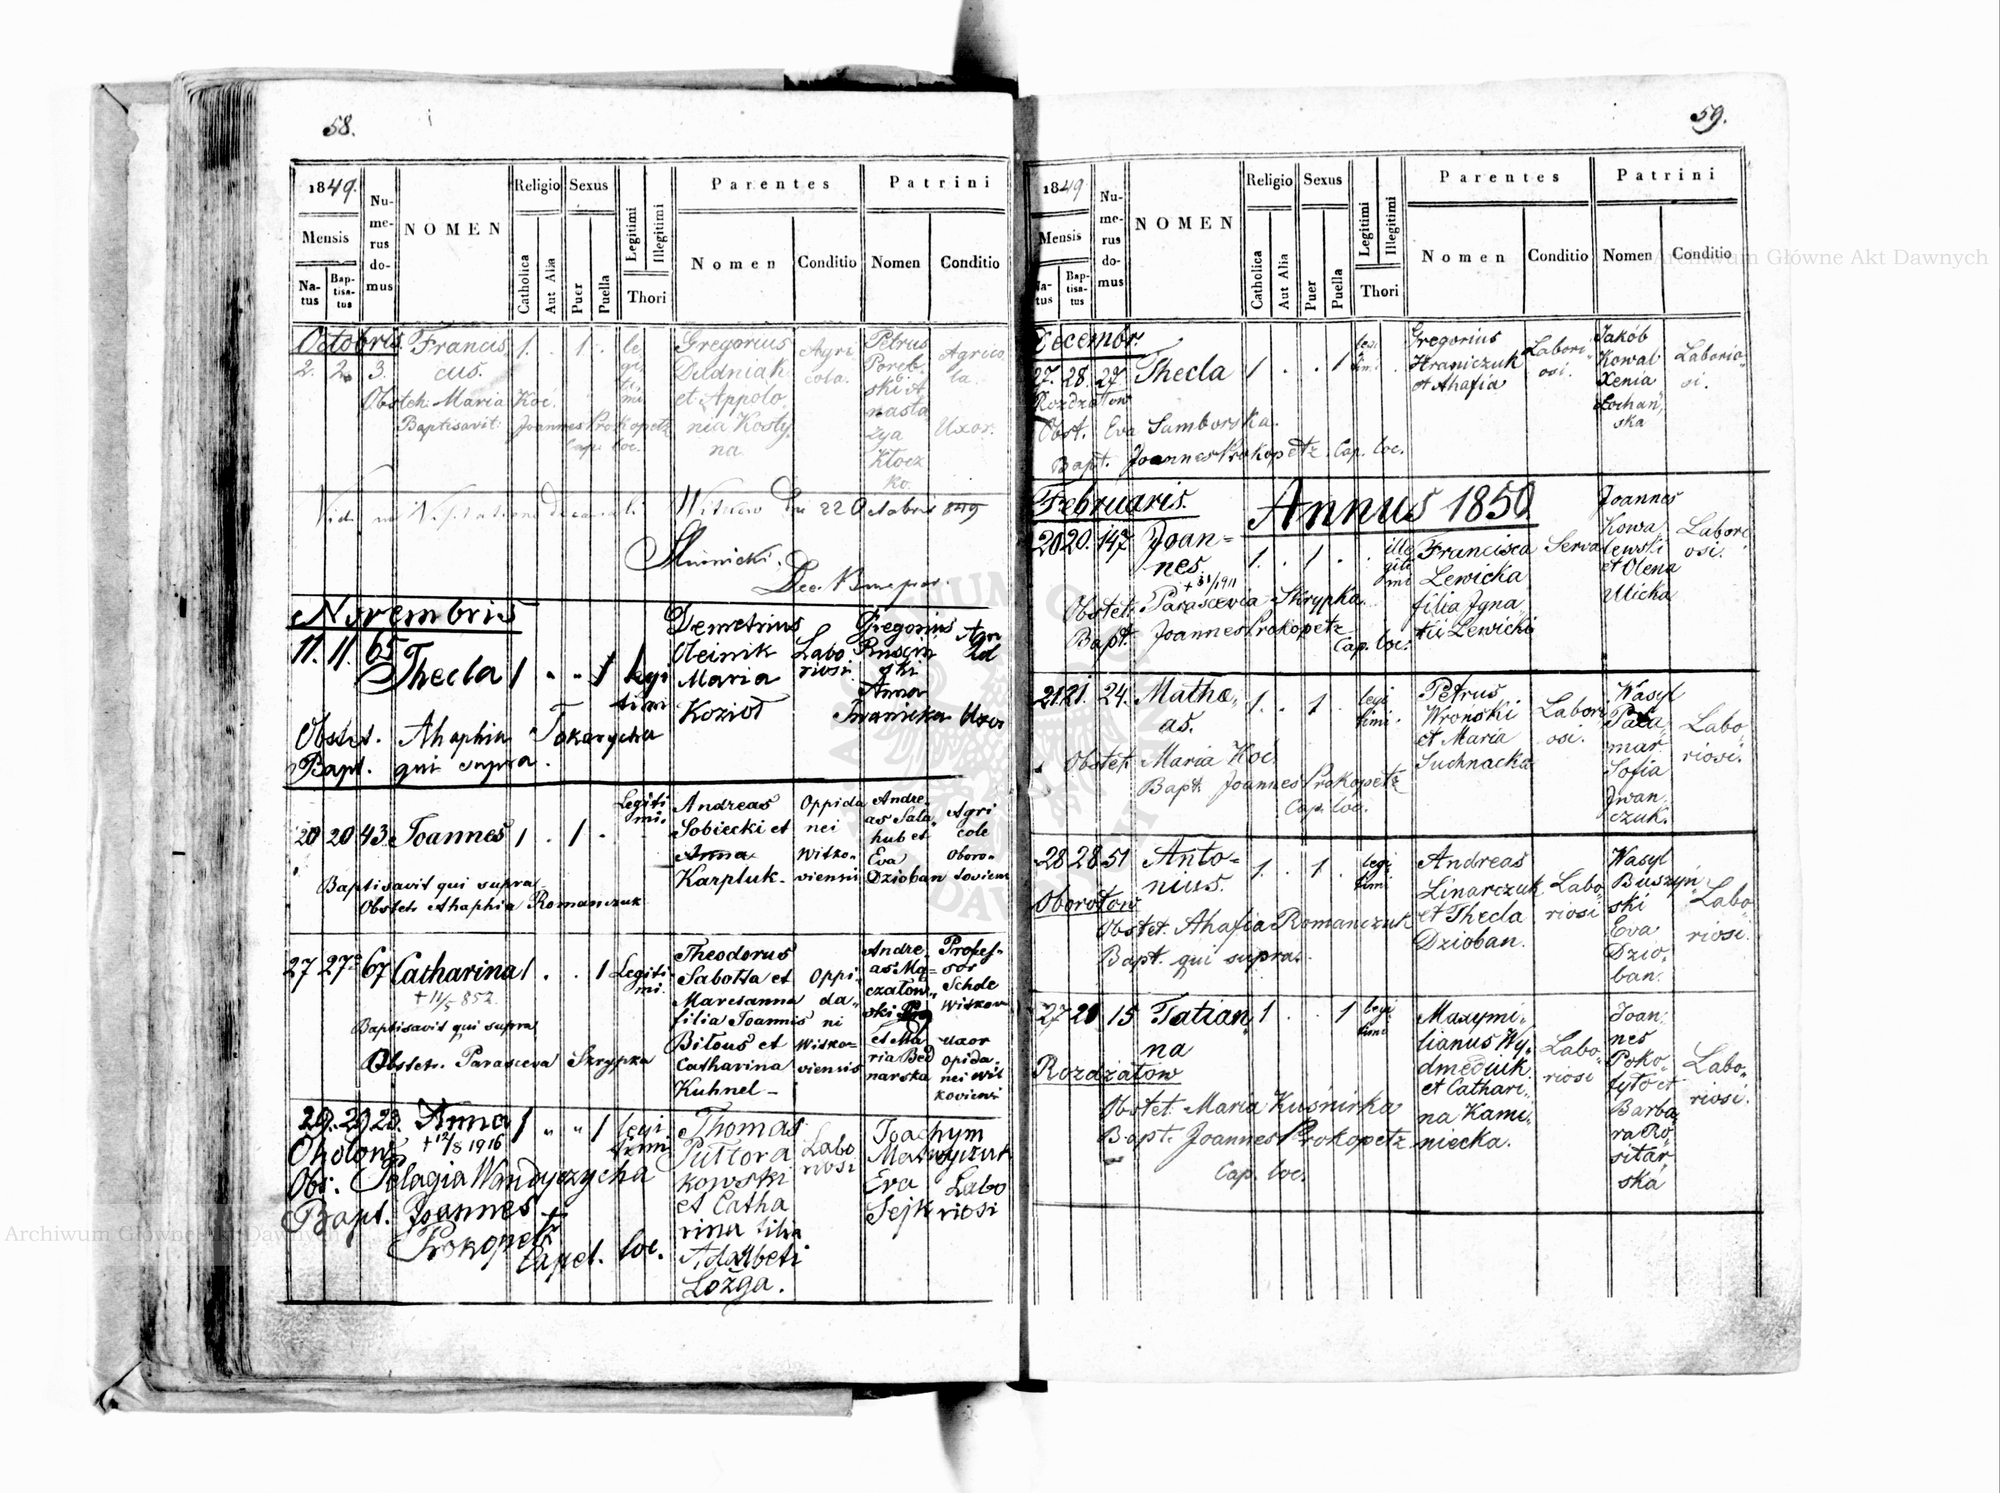 58.
1849.
Mensis
Natus
Baptisatus
Numerus domus
NOMEN
Religio
Catholica
Aut Alia
Sexus
Puer
Puella
Legitimi
Illegitimi
Thori
Parentes
Nomen
Conditio
Patrini
Nomen
Conditio
Octobris
2. 2. 3. Franciscus. 1. . 1. . legitimi
Gregorius
Dudniak
et Appolo
nia Kosty
na.
Agri
cola.
Petrus
Poreb
ski A
nasta
zya
Kłocz
ko.
Agrico
la.
Uxor.
Obstet. Maria Koć.
Baptisavit: Joannes Prokopetz
Cap. loc.
Witków 22 Octobris 849
Novembris
11. 11. 65 Thecla 1 . . 1 legi
timi
Demetrius
Oleinik
Maria
Kozioł
Labo
riosi
Gregorius
Ruscin
ski
Anna
Iwanicka Uxor
Obstet. Ahaphia Tokarycha
Bapt. qui supra.
20 20 43 Joannes 1 . 1 . Legiti
mi.
Andreas
Sobiecki et
Anna
Karpluk-
Oppida
nei
Witko-
viensis
Andre-
as Sala
hub et
Eva
Dzioban
Agri
cole
Oboro-
toviens
Baptisavit qui supra
Obstet. Ahaphia Romanczuk
27 27 67 Catharina 1 . . 1 Legiti
mi.
+ 11/5 852.
Theodorus
Sabotta et
Marcianna
filia Joannis
Bitous et
Catharina
Kuhnel-
Oppi-
da-
ni
Witko-
viensis
Andre-
as Ma-
czatow-
ski
et Ma
ria Bed
narska
Profes-
sor
Schole
Witkow
uxor
opida-
nei Wit
koviens
Baptisavit qui supra
Obstet. Parasceva Skrypka
29. 29. 23. Anna 1 " " 1 legi
timi
+ 12/8 1916
Thomas
Puttora
kowski
et Catha
rina filia
Adalberti
Lożga.
Labo
riosi
Joachym
Matwyczuk
Eva
Sejk
Labo
riosi
Ohołow
Obs. Pelagia Wandyczycha
Bapt. Joannes
Prokopetz
Capel. loc.
59.
1849
Mensis
Natus
Baptisatus
Numerus domus
NOMEN
Religio
Catholica
Aut Alia
Sexus
Puer
Puella
Legitimi
Illegitimi
Thori
Parentes
Nomen
Conditio
Patrini
Nomen
Conditio
Decembr.
27. 28. 27 Thecla 1 . . 1 legi
timi
Gregorius
Hraniczuk
et Ahafia
Labori
osi.
Jakób
Kowal
Xenia
Łochan
ska
Laborio
si.
Rozdzałow
Obst. Eva Samborska.
Bapt. Joannes Prokopetz Cap. loc.
Februaris.
Annus 1850
20 20. 147 Joan=
nes. 1. . 1 . ille
giti
mi
+ 31/1911
Francisca
Lewicka
filia Igna
tii Lewicki
Serva
Joannes
Kowa
lewski
et Olena
Ulicka
Labori
osi.
Obstet. Parascevia Skrypka.
Bapt. Joannes Prokopetz
Cap. loc.
21 21. 24. Mathe
as. 1. . 1 . legi
timi.
Petrus
Wroński
et Maria
Suchnacka
Labori
osi.
Wasyl
Pała
mar
Sofia
Iwan
czuk.
Labo
riosi.
Obstet. Maria Koć
Bapt. Joannes Prokopetz
Cap. loc.
28 28 51 Anto=
nius. 1. . 1 . legi
timi
Andreas
Linarczuk
et Thecla
Dzioban.
Labo
riosi
Wasyl
Buszyń
ski
Eva
Dzio.
ban.
Labo
riosi.
Oborotow
Obstet. Ahafia Romanczuk
Bapt. qui supra.
27 28 15 Tatian
na 1 . . 1 legi
timi
Maxymi
lianus Wy
dmediuk
et Cathari
na Kami
niecka.
Labo
riosi
Joan.
nes
Poko.
fyto et
Barba
ra Ro
sitar
ska
Labo
riosi.
Rozdzatow
Obstet. Maria Kuśnirka
Bapt. Joannes Prokopetz
Cap. loc.
Archiwum Główne Akt Dawnych
Archiwum Główne Akt Dawnych